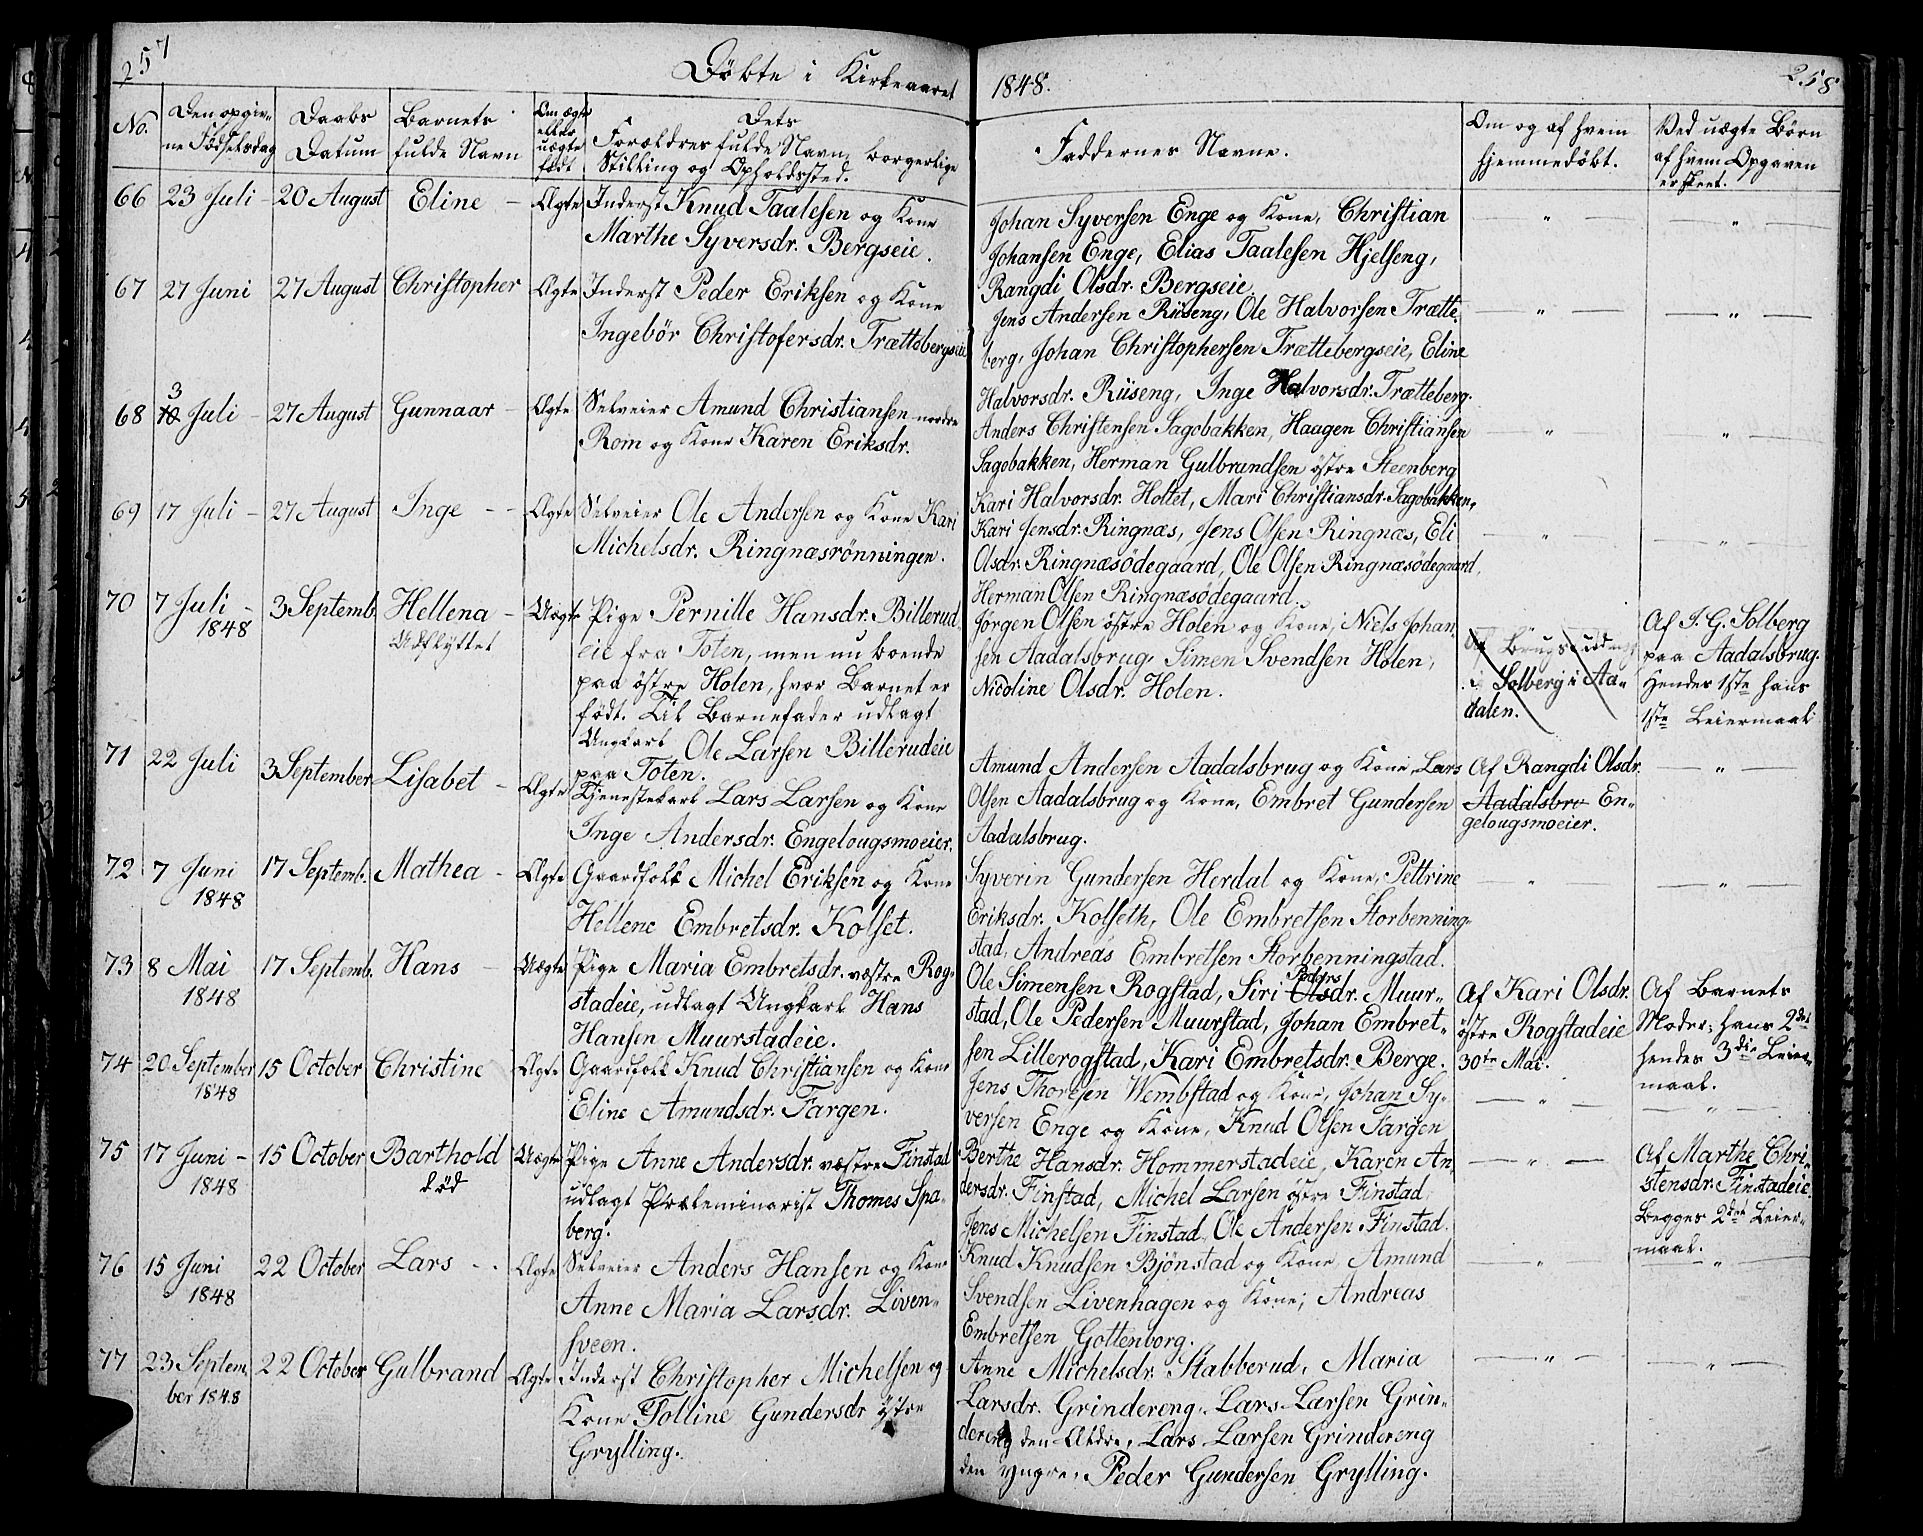 257
Döbte i Kirkeaaret 1848.
258
No.
Den opgiv-
ne Födselsdag
Daabs
Datum
Barnets
fulde Navn
Om ægte
eller
uægte
födt
Dets
Forældres fulde Navn, borgerlige
Stilling og Opholdssted.
Faddernes Navne.
Om og af hvem
hjemmedöbt.
Ved uægte Börn
af hvem Opgaven
er skeet.
66 23 Juli - 20 August Eline - Ægte Inderst Knud Taalesen og Kone
Marthe Syversdr. Bergseie.
Johan Syversen Enge og Kone, Christian
Johansen Enge, Elias Taalesen Hjelseng,
Rangdi Olsdr. Bergseie
67 27 Juni 27 August Christopher Ægte Inderst Peder Eriksen og Kone
Ingebör Christofersdr. Trættebergseie
Jens Andersen Rüseng, Ole Halvorsen Trætte-
berg, Johan Christophersen Trættebergseie, Eline
Halvorsdr. Rüseng, Inge Halvorsdr. Trætteberg.
68 3
10 Juli - 27 August Gunnaar - Ægte Selveier Amund Christiansen nordre
Rom og Kone Karen Eriksdr.
Anders Christensen Sagobakken, Haagen Christiansen
Sagobakken, Herman Gulbrandsen östre Steenberg
Kari Halvorsdr. Holtet, Mari Christiansdr. Sagobakken,
69 17 Juli - 27 August Inge - - Ægte Selveier Ole Andersen og Kone Kari
Michelsdr. Ringnæsrönningen.
Kari Jensdr. Ringnæs, Jens Olsen Ringnæs, Eli
Olsdr. Ringnæsödegaard, Ole Olsen Ringnæsödegaard,
Herman Olsen Ringnæsödegaard
70 7 Juli - 3 Septemb. Hellena - Uægte Pige Pernille Hansdr. Billerud-
1848 Udflyttet
eie fra Toten, men nu boende
paa östre Holen, hvor Barnet er
födt. Til Barnefader udlagt
Ungkarl Ole Larsen Billerudeie
paa Toten.
Jörgen Olsen östre Holen og Kone, Niels Johan-
sen Aadalsbrug, Simen Svendsen Holen,
Nicoline Olsdr. Holen.
Solberg i Aa-
dalen.
Af I. G. Solberg
paa Aadalsbrug.
Hendes 1ste hans
1ste Leiermaal
71 22 Juli 3 September Lisabet - Ægte Tjenestekarl Lars Larsen og Kone
Inge Andersdr. Engelougsmoeier.
Amund Andersen Aadalsbrug og Kone, Lars
Olsen Aadalsbrug og Kone, Embret Gundersen
Aadalsbrug.
Af Rangdi Olsdr.
Aadalsbru En-
gelougsmoeier.
72 7 Juni 17 Septemb. Mathea - Ægte Gaardfolk Michel Eriksen og Kone
1848
Hellene Embretsdr. Kolset.
Syverin Gundersen Herdal og Kone, Pettrine
Eriksdr. Kolseth, Ole Embretsen Storbenning-
stad, Andreas Embretsen Storbenningstad.
73 8 Mai 17 Septemb. Hans - Uægte Pige Maria Embretsdr. västre Rog-
1848
stadeie, udlagt Ungkarl Hans
Hansen Muurstadeie.
Ole Simensen Rogstad, Siri Olsdr. Muur-
Peders
stad, Ole Pedersen Muurstad, Johan Embret-
sen Lillerogstad, Kari Embretsdr. Berge.
Af Kari Olsdr.
östre Rogstadeie
30te Mai.
Af Barnets
Moder; hans 2det
hendes 3die Leier-
maal.
74 20 September 15 October Christine Ægte Gaardfolk Knud Christiansen og Kone
1848
Eline Amundsdr. Fargen.
Jens Thoresen Wembstad og Kone, Johan Sy-
versen Enge og Kone, Knud Olsen Fargen
75 17 Juni - 15 October Barthold Uægte Pige Anne Andersdr. västre Finstad
1848 död
udlagt Præleminarist Thomes Spa-
berg.
Berthe Hansdr. Hommerstadeie, Karen An-
dersdr. Finstad, Michel Larsen östre Finstad,
Jens Michelsen Finstad, Ole Andersen Finstad.
Af Marthe Chri-
stensdr. Finstadeie.
Begges 2det Leier-
maal.
76 15 Juni 22 October Lars - - Ægte Selveier Anders Hansen og Kone
1848
Anne Maria Larsdr. Liven-
sveen.
Knud Knudsen Bjönstad og Kone, Amund
Svendsen Livenhagen og Kone; Andreas
Embretsen Gottenborg.
77 23 Septem- 22 October Gulbrand Ægte Inderst Christopher Michelsen og
ber 1848
Kone Tolline Gundersdr östre
Grylling.
Anne Michelsdr. Stabberud, Maria
Larsdr. Grindereng, Lars Larsen Grin-
dereng den Ældre, Lars Larsen Grindereng
den yngre, Peder Gundersen Grylling.